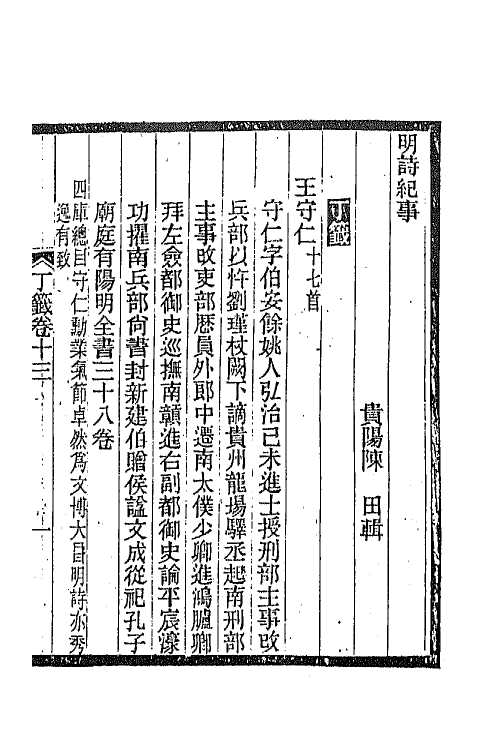 明詩紀事
貴陽陳　田輯
丁籤
王守仁十七首
守仁字伯安餘姚人弘治己未進士授刑部主事改
兵部以忤劉瑾杖闕下謫貴州龍場驛丞起南刑部
主事改吏部歷員外郎中遷南太僕少卿進鴻臚卿
拜左僉都御史巡撫南贛進右副都御史論平宸濠
功擢南兵部尚書封新建伯贈侯諡文成從祀孔子
廟庭有陽明全書三十八卷
四庫總目守仁勳業氣節卓然為文博大昌明詩亦秀
逸有致
丁籤卷十三
一